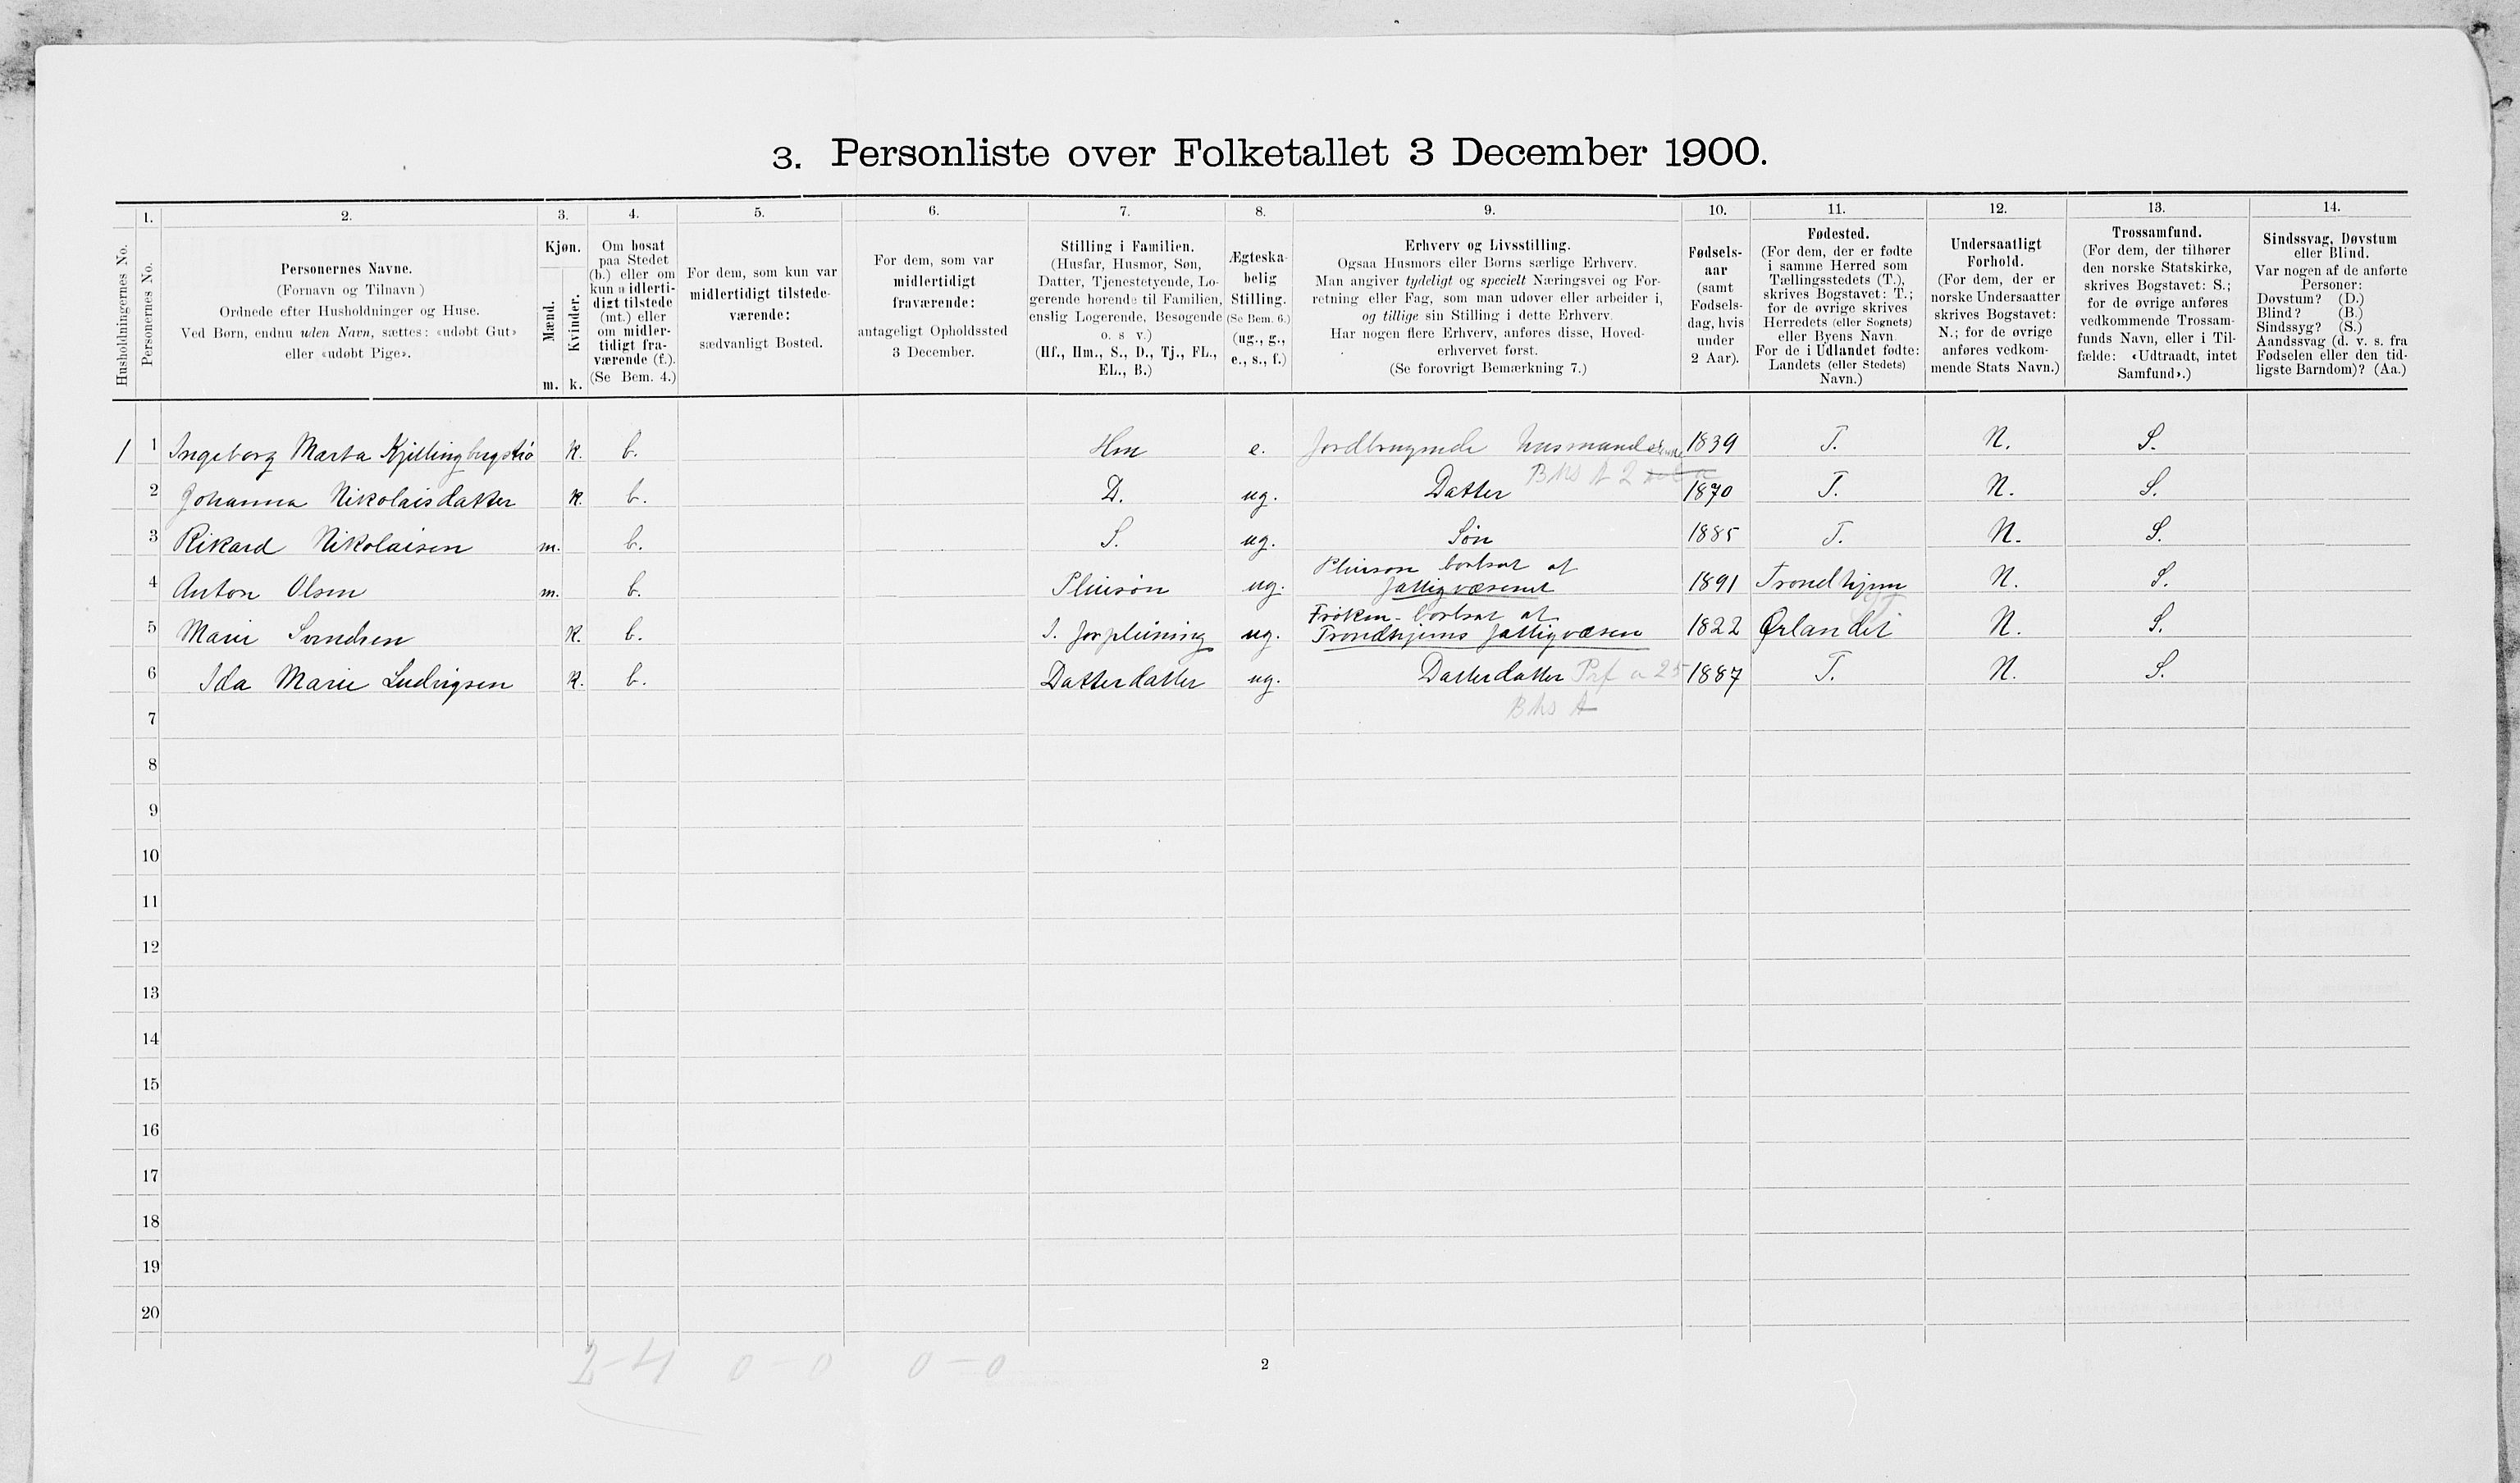 3. Personliste over Folketallet 3 December 1900.
1. 2. 3. 4. 5. 6. 7. 8. 9. 10. 11. 12. 13. 14.
Husholdningernes No.
Personernes No.
Personernes Navne.
(Fornavn og Tilnavn)
Ordnede efter Husholdninger og Huse.
Ved Børn, endnu uden Navn, sættes: «udøbt Gut»
eller «udøbt Pige».
Kjøn.
Mænd.
Kvinder.
m. k.
Om bosat
paa Stedet
(b.) eller om
kun midlerti-
digt tilstede
(mt.) eller
om midler-
tidigt fra-
værende (f.).
(Se Bem. 4.)
For dem, som kun var
midlertidigt tilstede-
værende:
sædvanligt Bosted.
For dem, som var
midlertidigt
fraværende:
antageligt Opholdssted
3 December.
Stilling i Familien.
(Husfar, Husmor, Søn,
Datter, Tjenestetyende, Lo-
gerende hørende til Familien,
enslig Logerende, Besøgende
o. s. v.)
(Hf., Hm., S., D., Tj., FL.,
EL., B.)
Ægteska-
belig
Stilling.
(Se Bem. 6.)
(ug., g.,
e., s., f.)
Erhverv og Livsstilling.
Ogsaa Husmors eller Børns særlige Erhverv.
Man angiver tydeligt og specielt Næringsvei og For-
retning eller Fag, som man udøver eller arbeider i,
og tillige sin Stilling i dette Erhverv.
Har nogen flere Erhverv, anføres disse, Hoved-
erhvervet først.
(Se forøvrigt Bemærkning 7.)
Fødsels-
aar
(samt
Fødsels-
dag, hvis
under
2 Aar).
Fødested.
(For dem, der er fødte
i samme Herred som
Tællingsstedets (T.),
skrives Bogstavet: T.;
for de øvrige skrives
Herredets (eller Sognets)
eller Byens Navn.
For de i Udlandet fødte:
Landets (eller Stedets)
Navn.)
Undersaatligt
Forhold.
(For dem, der er
norske Undersaatter
skrives Bogstavet:
N.; for de øvrige
anføres vedkom-
mende Stats Navn.)
Trossamfund.
(For dem, der tilhører
den norske Statskirke,
skrives Bogstavet: S.;
for de øvrige anføres
vedkommende Trossam-
funds Navn, eller i Til-
fælde: «Udtraadt, intet
Samfund».)
Sindssvag, Døvstum
eller Blind.
Var nogen af de anførte
Personer:
Døvstum? (D.)
Blind? (B.)
Sindssyg? (S.)
Aandssvag (d. v. s. fra
Fødselen eller den tid-
ligste Barndom)? (Aa.)
1 1 Ingeborg Marta k. b. Hm e. Jordbrugende 1839 T. N. S.
Bhs A 2
2 Johanna Nikolaisdatter k. b. D. ug. Datter 1870 T. N. S.
3 Rikard Nikolaisen m. b. S. ug. Søn 1885 T. N. S.
4 Anton Olsen m. b. Pleiesøn ug. Pleiesøn bortsat af fattigvæsenet 1891 Trondhjem N. S.
5 Marie Svendsen k. b. I. forpleining ug. Frøken - bortsat af Trondhjems fattigvæsen 1822 Ørlandet N. S.
6 Ida Marie Ludvigsen k. b. Datterdatter ug. Datterdatter 1887 T. N. S.
Bhs A
7
8
9
10
11
12
13
14
15
16
17
18
19
20
2-4 0-0 0-0
2